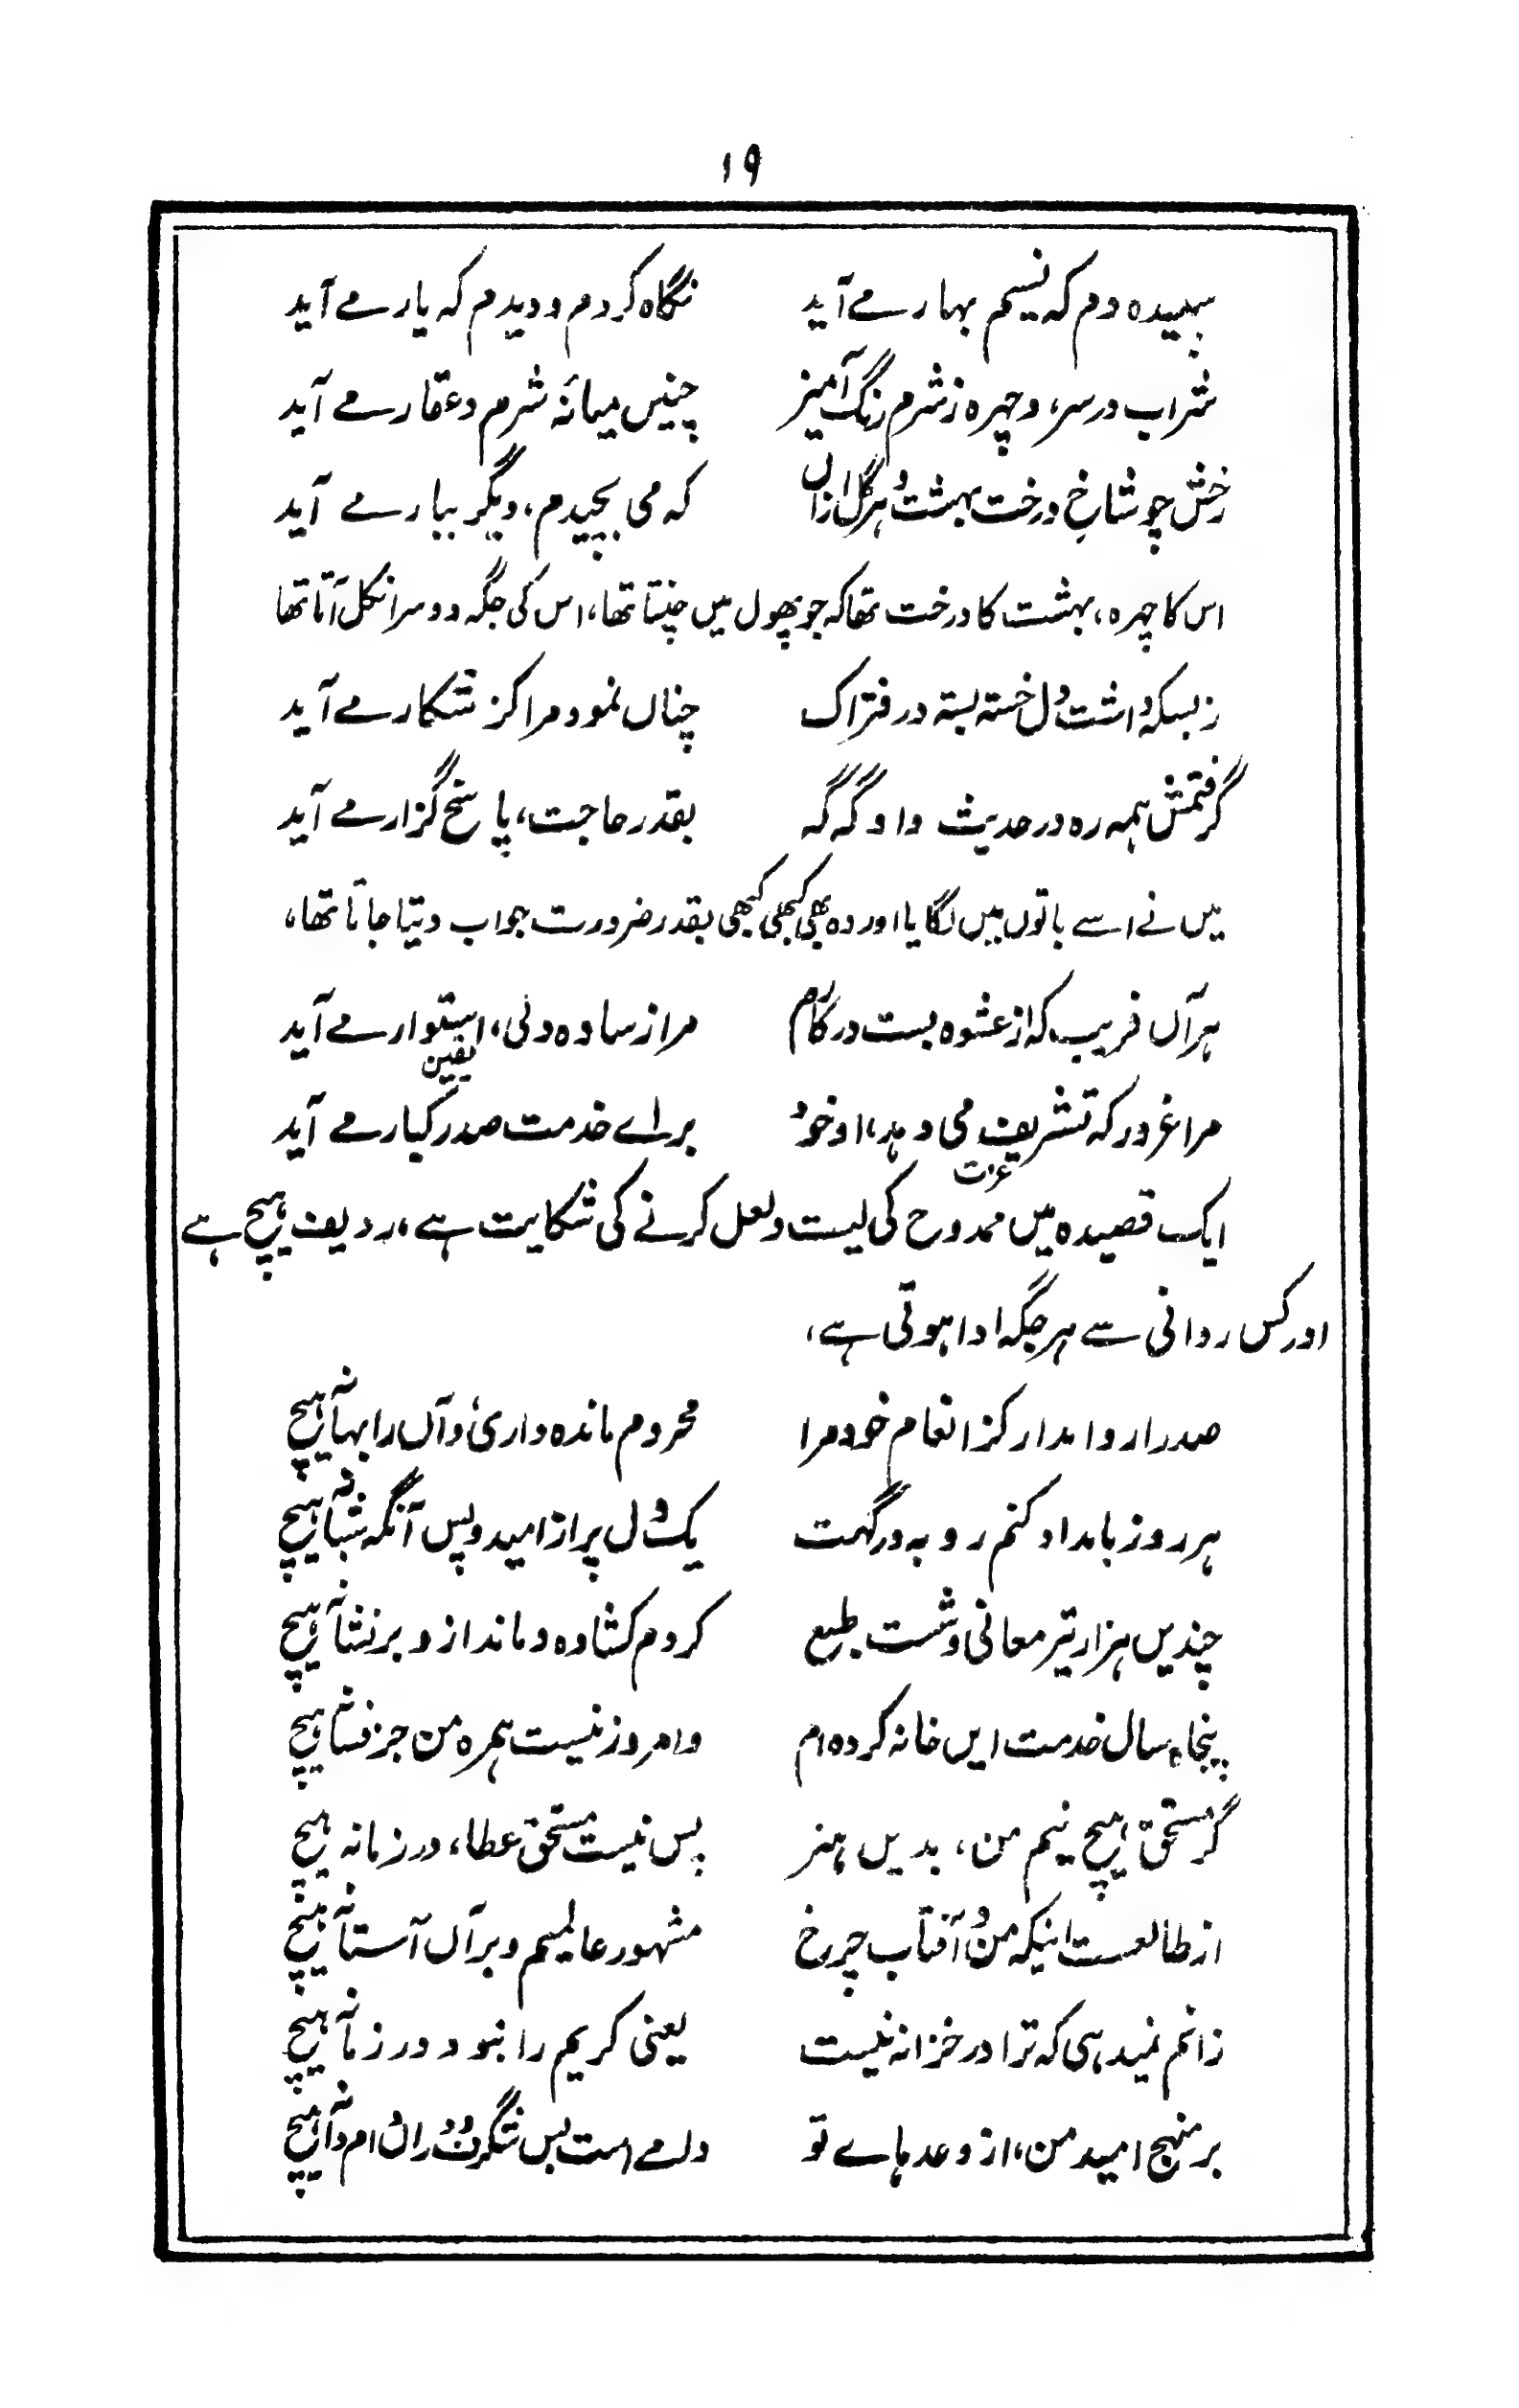 ۱۹
سپیده دم که نسیم بہار مے آید نگاہ کردم و دیدم که یار مے آید
شراب در سر، و چہرہ ز شرم رنگ آمیز چنیں میانۂ شرم و عقار مے آید
رخش چو شاخِ درخت بہشت و ہر گل ازاں که می بچیدم، دیگر ببار مے آید
اس کا چہرہ، بہشت کا درخت تھا کہ جو پھول میں چنتا تھا، اس کی جگہ دوسرا نکل آتا تھا
زبسکہ داشت دل خستہ بستہ در فتراک چناں نمود مرا کز شکار مے آید
گرفتمش ہمہ رہ در حدیث و او گہ گہ بقدر حاجت، پاسخ گزار مے آید
میں نے اسے باتوں میں لگایا اور وہ بھی کبھی کبھی بقدر ضرورت جواب دیتا جاتا تھا،
ہر آں فریب کہ از عشوہ بست در کارم مرا ز سادہ دلی، استوار مے آید
یقین
مرا غرور کہ تشریف می دہد، او خود براے خدمت صدر کبار مے آید
عزت
ایک قصیدہ میں ممدوح کی لیت و لعل کرنے کی شکایت ہے، ردیف ہیچ ہے
اور کس روانی سے ہر جگہ ادا ہوتی ہے،
صدرا روا مدار کز انعام خود مرا محروم ماندہ داری و آں را بہانہ ہیچ
ہر روز بامداد کنم رو بہ درگہت یک دل پر از امید و پس آنگہ شبانہ ہیچ
چندیں ہزار تیر معانی ز شست طبع کردم کشادہ و ماند ازو بر نشانہ ہیچ
پنجاہ سال خدمت ایں خانہ کردہ ام و امروز نیست ہمرہ من جز فسانہ ہیچ
گر مستحق ہیچ نیم من، بدیں ہنر پس نیست مستحق عطا، در زمانہ ہیچ
از طالعست اینکہ من و آفتاب چرخ مشہور عالمیم و بر آں آستانہ ہیچ
زانم نمیدہی کہ ترا در خزانہ نیست یعنی کریم را نبود در زمانہ ہیچ
بر منہج امید من، از وعدہاے تو دامے است بس شگرف و دراں دام دانہ ہیچ